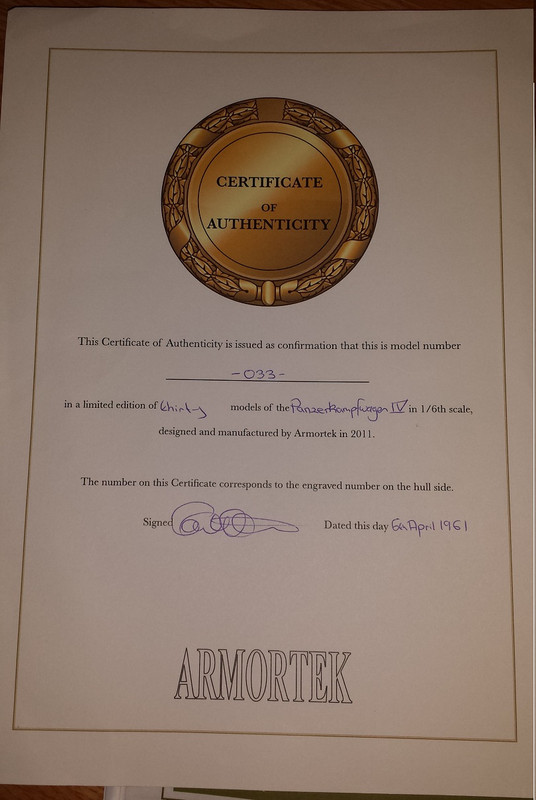 CERTIFICATE
OF
AUTHENTICITY
This Certificate of Authenticity is issued as confirmation that this is model number
-033-
in a limited edition of thirty models of the Panzerkampfwagen IV in 1/6th scale,
designed and manufactured by Armortek in 2011.
The number on this Certificate corresponds to the engraved number on the hull side.
Signed Dated this day 6th April 1961
ARMORTEK